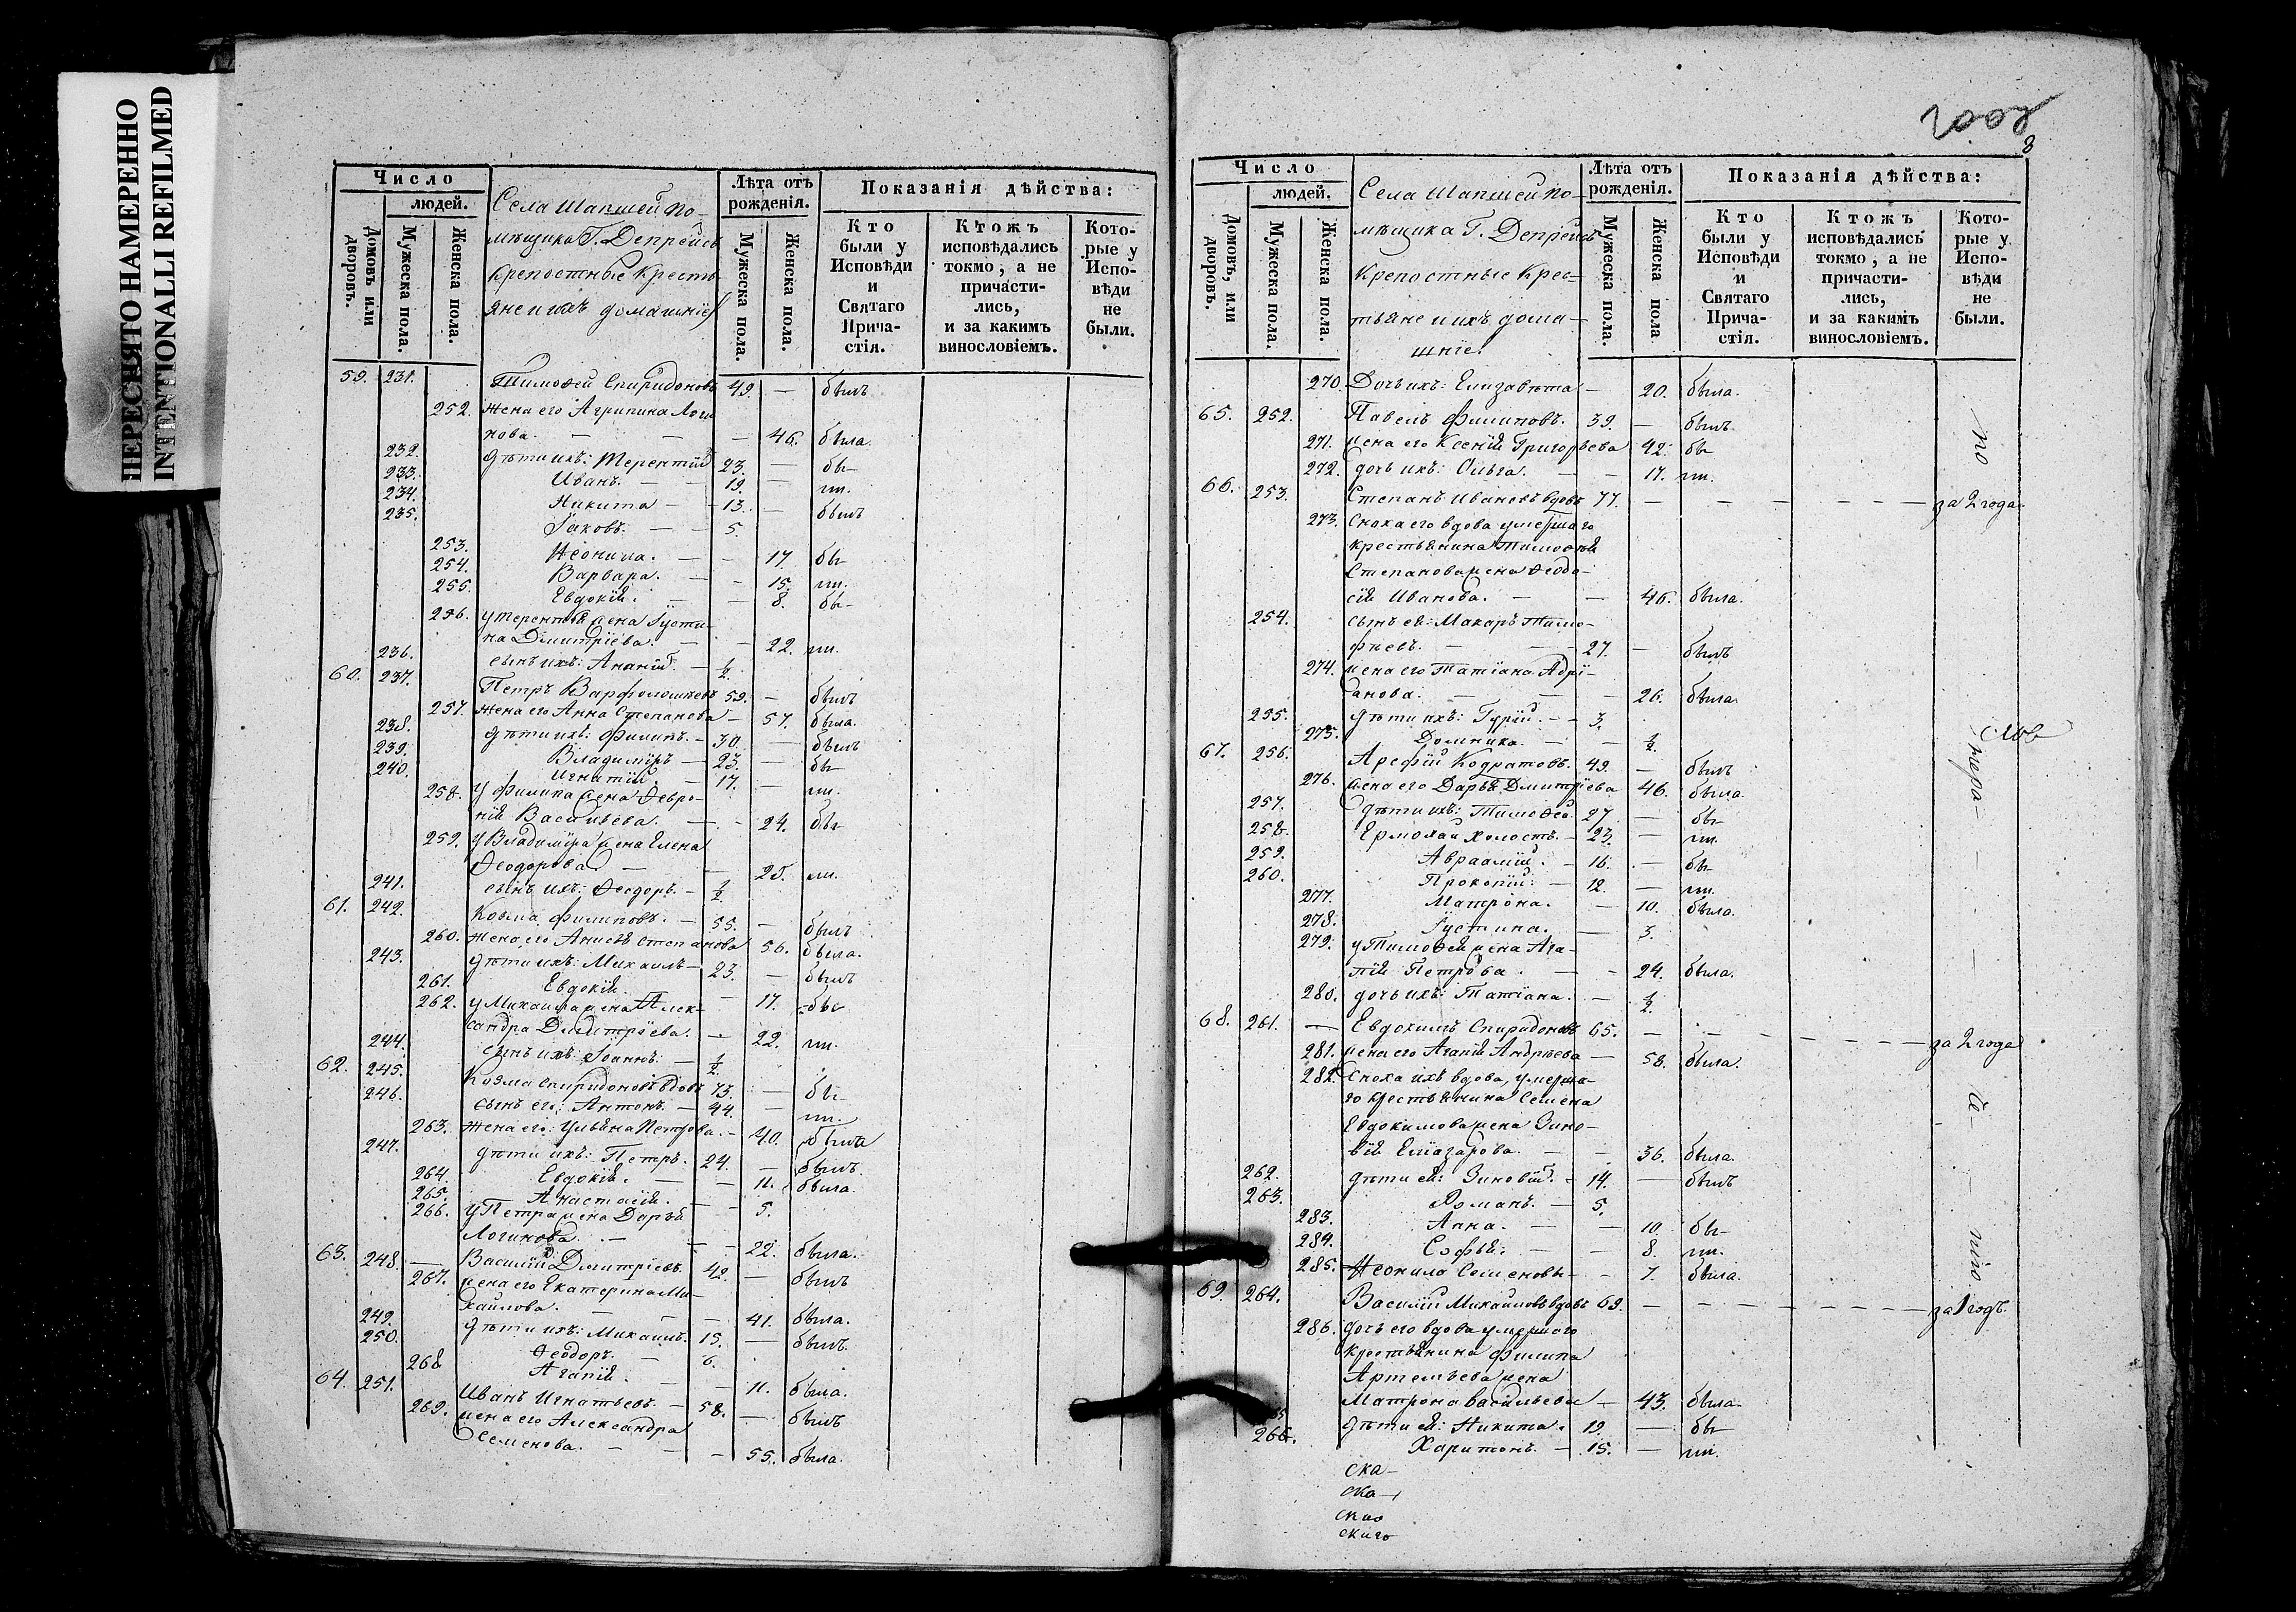 ПЕРЕСНЯТО НАМЕРЕННО
INTENTIONALLI REFILMED
Число
людей.
Домовъ или дворовъ.
Мужеска пола.
Женска пола.
Села Шапшей по-
мѣщика Г. Депрейсъ
крепостные кресть-
яне и ихъ домашніе
Лѣта отъ рожденія.
Мужеска пола.
Женска пола.
Показанія дѣйства:
Кто были у Исповѣди и Святаго Прича-стія.
Ктожъ исповѣдались токмо, а не причасти-лись, и за какимъ винословіемъ.
Кото-рые у Испо-вѣди не были.
59. 231. Тимоѳей Спиридоновъ 49. — былъ
252. жена его Агрипина Логи
нова. — — — 46. была.
232. дѣти ихъ: Терентій 23. — бы-
233. Иванъ. — 19. — ли.
234. Никита — 13. — былъ
235. Іаковъ. — 5.
253. Неонила. — — 17. бы-
254. Варвара. — — 15. ли.
255. Евдокія. — — 8. бы-
256. у Терентья жена Іусти-
на Дмитріева. — — 22. ли.
236. сынъ ихъ: Ананій. — ½.
60. 237. Петръ Варфоломѣевъ 59. — былъ
257. жена его Анна Степанова — 57. была.
238. дѣти ихъ: Филипъ. — 30. — былъ
239. Владиміръ — 23. — бы-
240. Игнатій. — 17. — ли.
258. у Филипа жена Февро-
нія Васильева. — — 24. бы-
259. у Владиміра жена Елена
Ѳеодорова. — — 25. ли.
241. сынъ ихъ: Ѳеодоръ. — ½.
61. 242. Козма Филиповъ. — 55. — былъ
260. жена его Анисья Степанова 56. была.
243. дѣти ихъ: Михаилъ — 23. — былъ
261. Евдокія. — 17. — бы-
262. у Михаила жена Алек-
сандра Дмитріева. — 22. ли.
244. сынъ ихъ: Іоаннъ. — ½.
62. 245. Козма Спиридоновъ вдовъ 73. — бы-
246. сынъ его: Антонъ. — 44. — ли.
263. жена его: Ульяна Петрова. — 40. была
247. дѣти ихъ: Петръ. 24. — былъ.
264. Евдокія. — — 11. была.
265. Анастасія. — — 5.
266. у Петра жена Дарья
Логинова. — — 22. была.
63. 248. — Василій Дмитріевъ. 42. — былъ
267. жена его Екатерина Ми-
хаилова. — — 41. была.
249. дѣти ихъ: Михаилъ. 15. — былъ.
250. Ѳеодоръ. — 6.
268. Агапія. — — 11. была.
64. 251. Иванъ Игнатьевъ. — 58. — былъ
269. жена его Александра
Семенова. — — 55. была.
1002
8
Число
людей.
Домовъ, или дворовъ.
Мужеска пола.
Женска пола.
Села Шапшей по-
мѣщика Г. Депрейсъ
крепостные крес-
тьяне и ихъ дома-
шніе.
Лѣта отъ рожденія.
Мужеска пола.
Женска пола
Показанія дѣйства:
Кто были у Исповѣди и Святаго Прича-стія.
Ктожъ исповѣдались токмо, а не причасти-лись, и за какимъ винословіемъ.
Кото-рые у Испо-вѣди не были.
270. Дочь ихъ: Елизавѣта — 20. была.
65. 252. Павелъ Филиповъ. 39. — былъ.
271. жена его Ксенія Григорьева 42. бы
272. дочь ихъ: Ольга. — — 17. ли.
66. 253. Степанъ Ивановъ вдовъ 77. — — — — — за 2 года.
273. Сноха его вдова умершаго
крестьянина Тимоѳея
Степанова жена Ѳеодо-
сія Иванова. — — 46. была.
254. сынъ ея: Макаръ Тимо-
фѣевъ. — — 27. — былъ
274. жена его Татіана Адрі-
анова. — — — 26. была
255. дѣти ихъ: Гурій. — 3.
275. Домника. — — ½.
67. 256. Арефій Кодратовъ. 49. — былъ
276. жена его Дарья Дмитріева 46. была.
257. дѣти ихъ: Тимоѳей. 27 — бы
258. Ермолай холостъ. — 23. — ли.
259. Авраамій. — 16. — бы-
260. Прокопій: — 12. — ли.
277. Матрона. — 10. была.
278. Іустина. — 3.
279. у Тимоѳея жена Ага-
пія Петрова. — — 24. была.
280. дочь ихъ: Татіана. — ½.
68. 261. — Евдокимъ Спиридоновъ 65. — — — — за 2 года
281. жена его Агапія Андрѣева — 58. была.
282. Сноха ихъ вдова, умерша-
го крестьянина Семена
Евдокимова жена Зино-
вія Елизарова. — — 36. была.
262. дѣти ея: Зиновій. — 14. — былъ
263. Романъ. — 5.
283. Анна. — — 10. бы-
284. Софья: — — 8. ли.
285. Неонила Семеновы — — 7. была.
69. 264. Василій Михаиловъ вдовъ 69. — — — — — за 1 годъ.
286. дочь его вдова умершаго
крестьянина Филипа
Артемьева жена
Матрона Васильева — 43. была.
дѣти ея: Никита. 19. — бы
266. Харитонъ. — 15. — ли.
по
ска-
ска-
ско
скаго